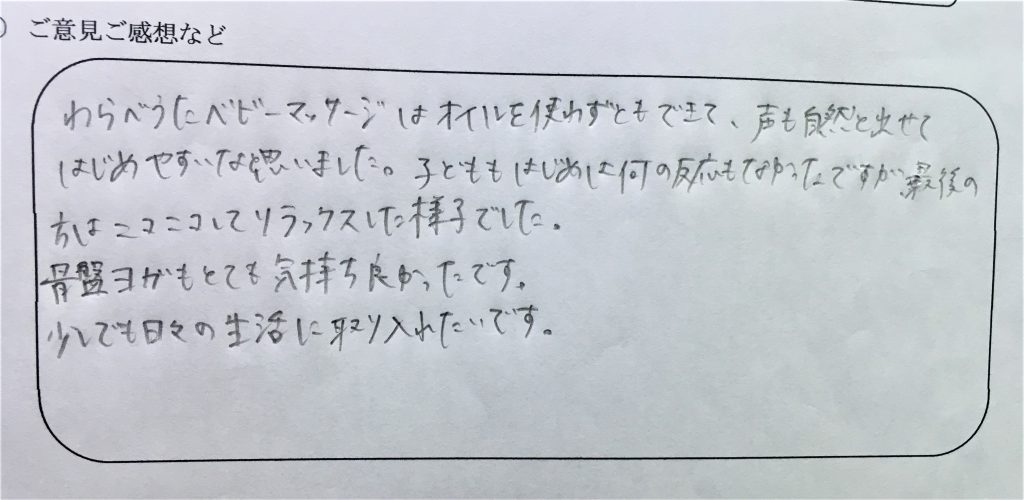 ご意見ご感想など
わらべうたベビーマッサージはオイルを使わずともできて、声も自然と出せて
はじめやすいなと思いました。子どももはじめは何の反応もなかったですが最後の
方はニコニコしてリラックスした様子でした。
骨盤ヨガもとても気持ち良かったです。
少しでも日々の生活に取り入れたいです。